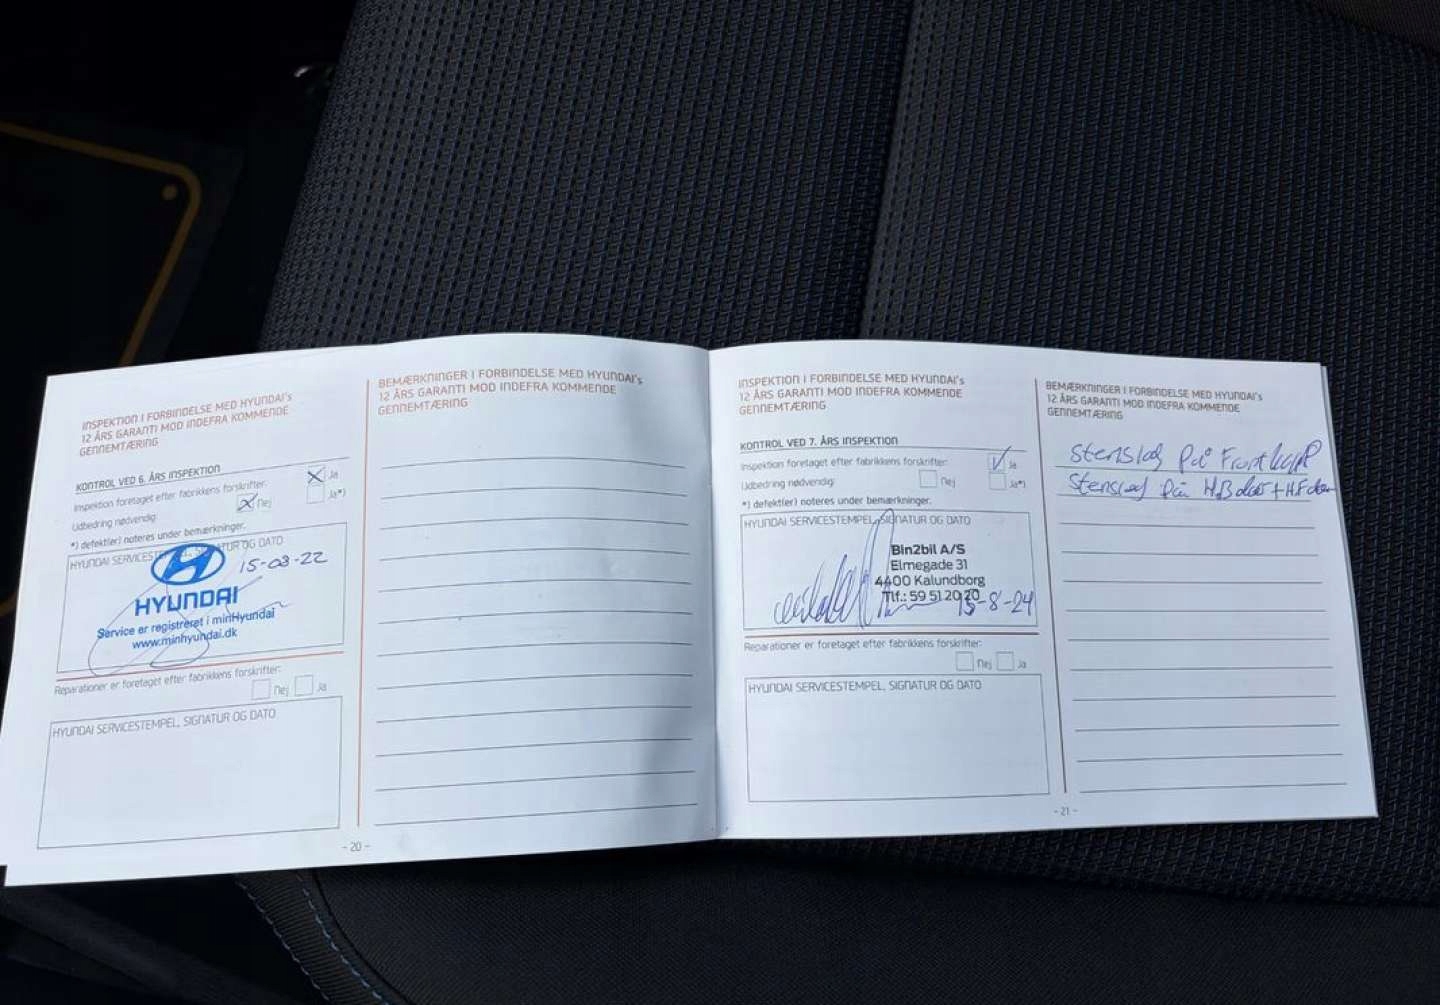 INSPEKTION I FORBINDELSE MED HYUNDAI's
12 ÅRS GARANTI MOD INDEFRA KOMMENDE
GENNEMTÆRING
KONTROL VED 6. ÅRS INSPEKTION
Inspektion foretaget efter fabrikkens forskrifter: X Ja
Udbedring nødvendig: X Nej Ja*)
*) defekt(er) noteres under bemærkninger.
HYUNDAI SERVICESTEMPEL, SIGNATUR OG DATO
15-03-22
HYUNDAI
Service er registreret i minHyundai
www.minhyundai.dk
Reparationer er foretaget efter fabrikkens forskrifter:
Nej Ja
HYUNDAI SERVICESTEMPEL, SIGNATUR OG DATO
BEMÆRKNINGER I FORBINDELSE MED HYUNDAI's
12 ÅRS GARANTI MOD INDEFRA KOMMENDE
GENNEMTÆRING
- 20 -
INSPEKTION I FORBINDELSE MED HYUNDAI's
12 ÅRS GARANTI MOD INDEFRA KOMMENDE
GENNEMTÆRING
KONTROL VED 7. ÅRS INSPEKTION
Inspektion foretaget efter fabrikkens forskrifter: Ja
Udbedring nødvendig: Nej Ja*)
*) defekt(er) noteres under bemærkninger.
HYUNDAI SERVICESTEMPEL, SIGNATUR OG DATO
Bin2bil A/S
Elmegade 31
4400 Kalundborg
Tlf.: 59 51 20 20
15-8-24
Reparationer er foretaget efter fabrikkens forskrifter:
Nej Ja
HYUNDAI SERVICESTEMPEL, SIGNATUR OG DATO
BEMÆRKNINGER I FORBINDELSE MED HYUNDAI's
12 ÅRS GARANTI MOD INDEFRA KOMMENDE
GENNEMTÆRING
Stenslag på Frontkapp
Stenslag på H.B dør + H.F dør
- 21 -